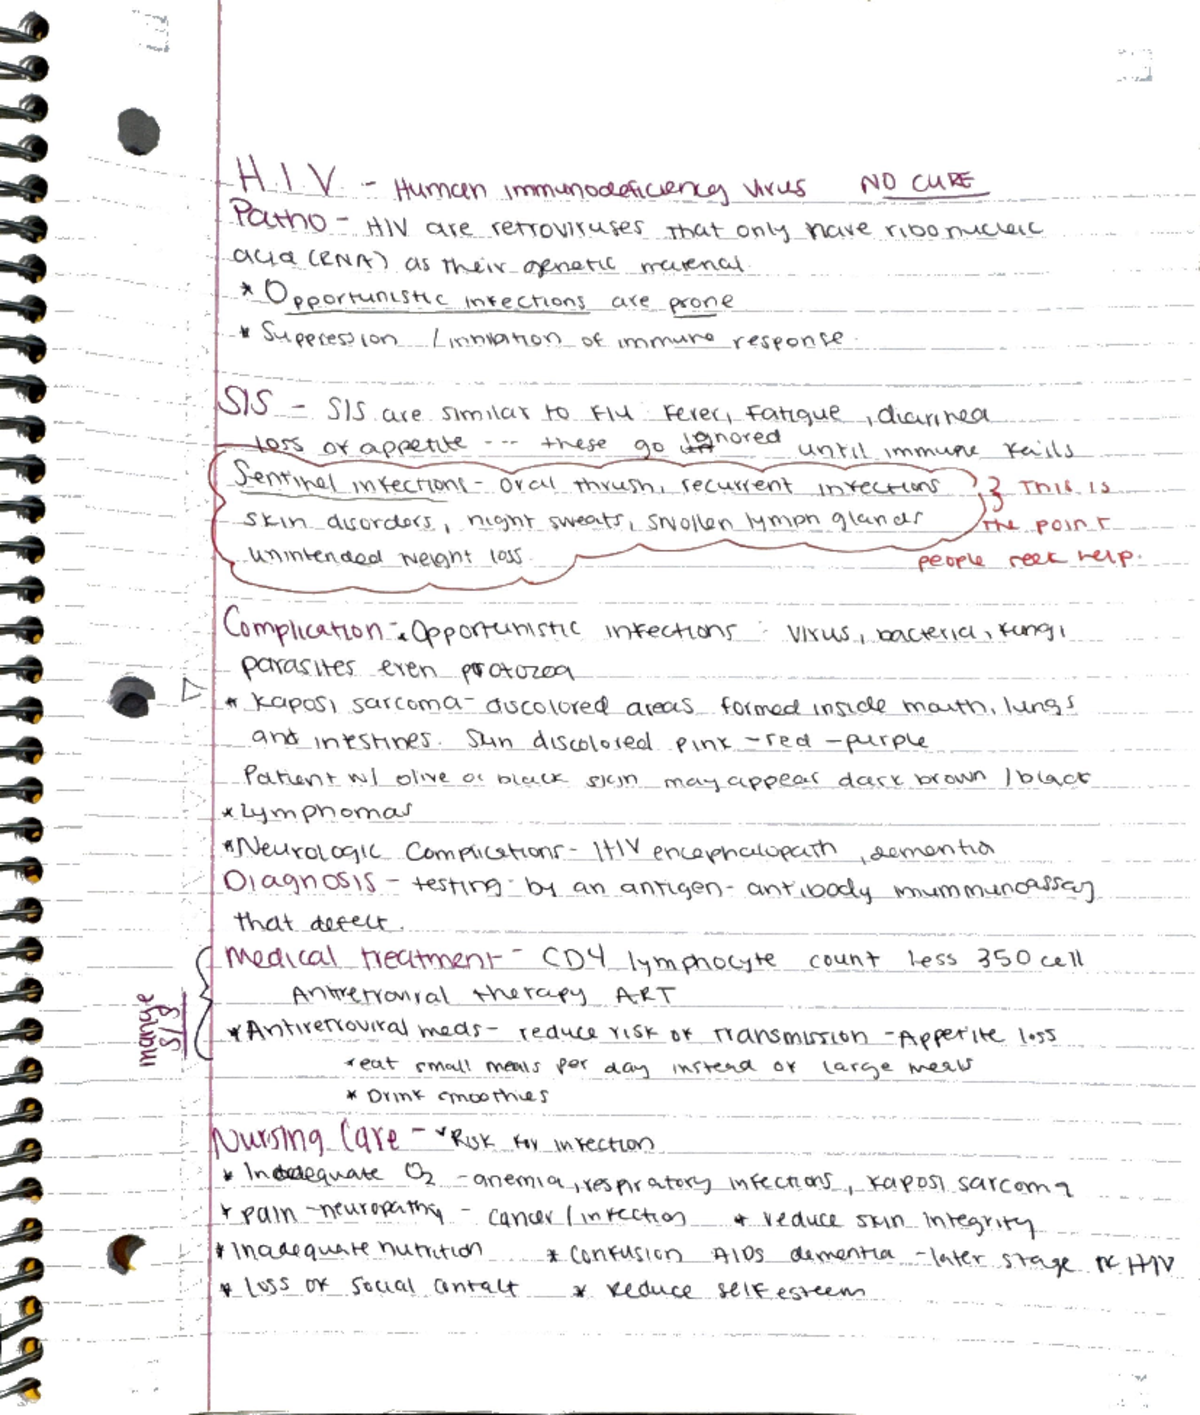 H.I.V. - Human immunodeficiency virus NO CURE
Patho - HIV are retroviruses that only have ribonucleic
acid (RNA) as their genetic material.
* Opportunistic infections are prone
* Suppression / inhibation of immune response.
S/S - S/S are similar to flu fever, fatigue, diarrhea
loss of appetite --- these go ignored until immune fails
Sentinel infections - oral thrush, recurrent infections } This is
skin disorders, night sweats, swollen lymph glands the point
unintended weight loss. people seek help.
Complication - * Opportunistic infections: virus, bacteria, fungi
parasites even protozoa
* Kaposi sarcoma - discolored areas formed inside mouth, lungs
and intestines. Skin discolored pink - red - purple
Patient w/ olive or black skin may appear dark brown / black
* Lymphomas
* Neurologic Complications - HIV encephalopath, dementia
Diagnosis - testing by an antigen - antibody immunoassay
that detect.
Medical treatment - CD4 lymphocyte count less 350 cell
Antiretroviral therapy ART
mange S/S
* Antiretroviral meds - reduce risk of transmission - Appetite loss
* eat small meals per day instead of large meals
* Drink smoothies
Nursing Care - * Risk for infection
* Inadequate O2 - anemia, respiratory infections, Kaposi sarcoma
* pain - neuropathy - cancer / infection * reduce skin integrity
* Inadequate nutrition * confusion AIDS dementia - later stage of HIV
* Loss of social contact * reduce self esteem